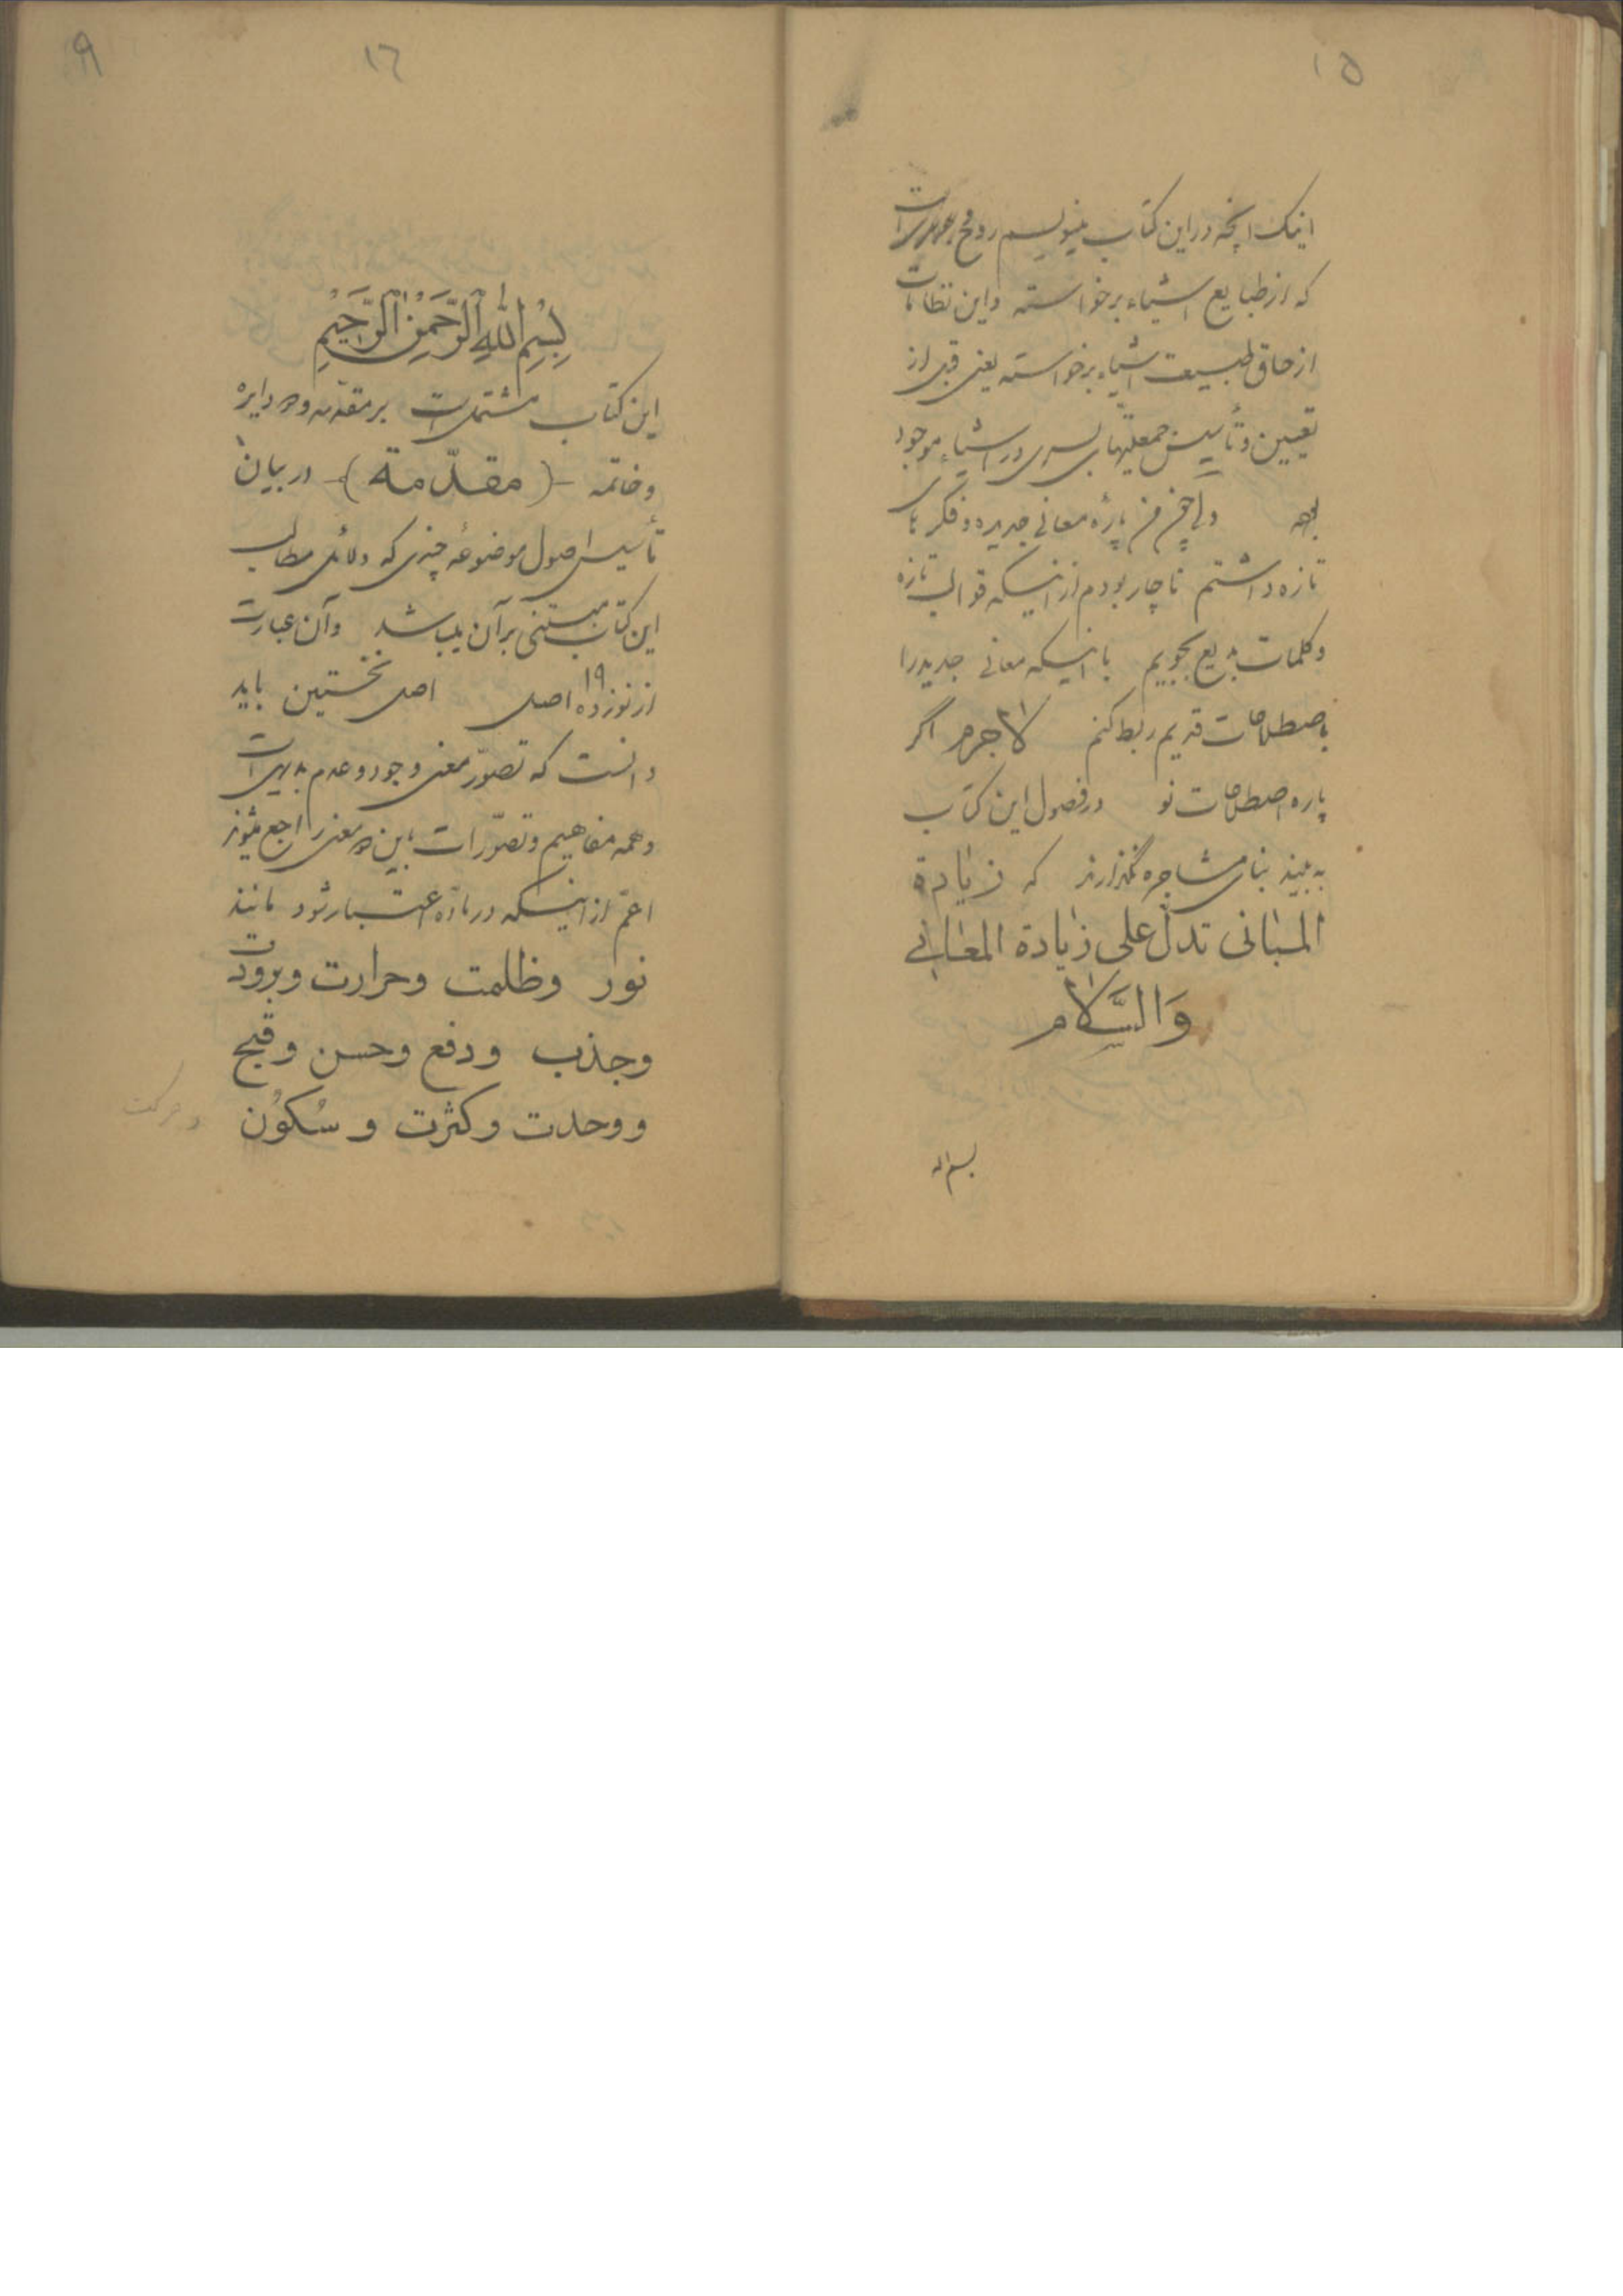 ١٥
اینک آنچه در این کتاب مینویسم روح است
که از طبایع اشیاء برخواسته و این نظامات
از حاق طبیعت اشیاء برخواسته یعنی قبل از
تعیین و تأسیس در اشیاء موجود
بوده ولی چون من پارهٔ معانی جدیده و فکرهای
تازه داشتم ناچار بودم از اینکه قوالب تازه
و کلمات بدیع بجویم یا اینکه معانی جدید را
باصطلاحات قدیم ربط کنم لاجرم اگر
پاره اصطلاحات نو در فصول این کتاب
به بینند بنای مشاجره نگذارند که زیادة
المبانی تدلّ علی زیادة المعانی
وَالسَّلام
بسم الله
٩
١٦
بِسْمِ اللهِ الرَّحْمنِ الرَّحیمِ
این کتاب مشتمل است بر مقدّمه و دایره
و خاتمه -(مقدّمة)- در بیان
تأسیس اصول موضوعهٔ چندی که دلائل مطالب
این کتاب مبتنی بر آن میباشد و آن عبارت
از نوزده ١٩ اصل اصل نخستین باید
دانست که تصوّر معنی وجود و عدم بدیهی است
و همه مفاهیم و تصوّرات باین معنی راجع میشوند
اعمّ از اینکه در مادّه اعتبار شود مانند
نور و ظلمت و حرارت و برودت
و جذب و دفع و حسن و قبح
و وحدت و کثرت و سُکوُن
و حرکت